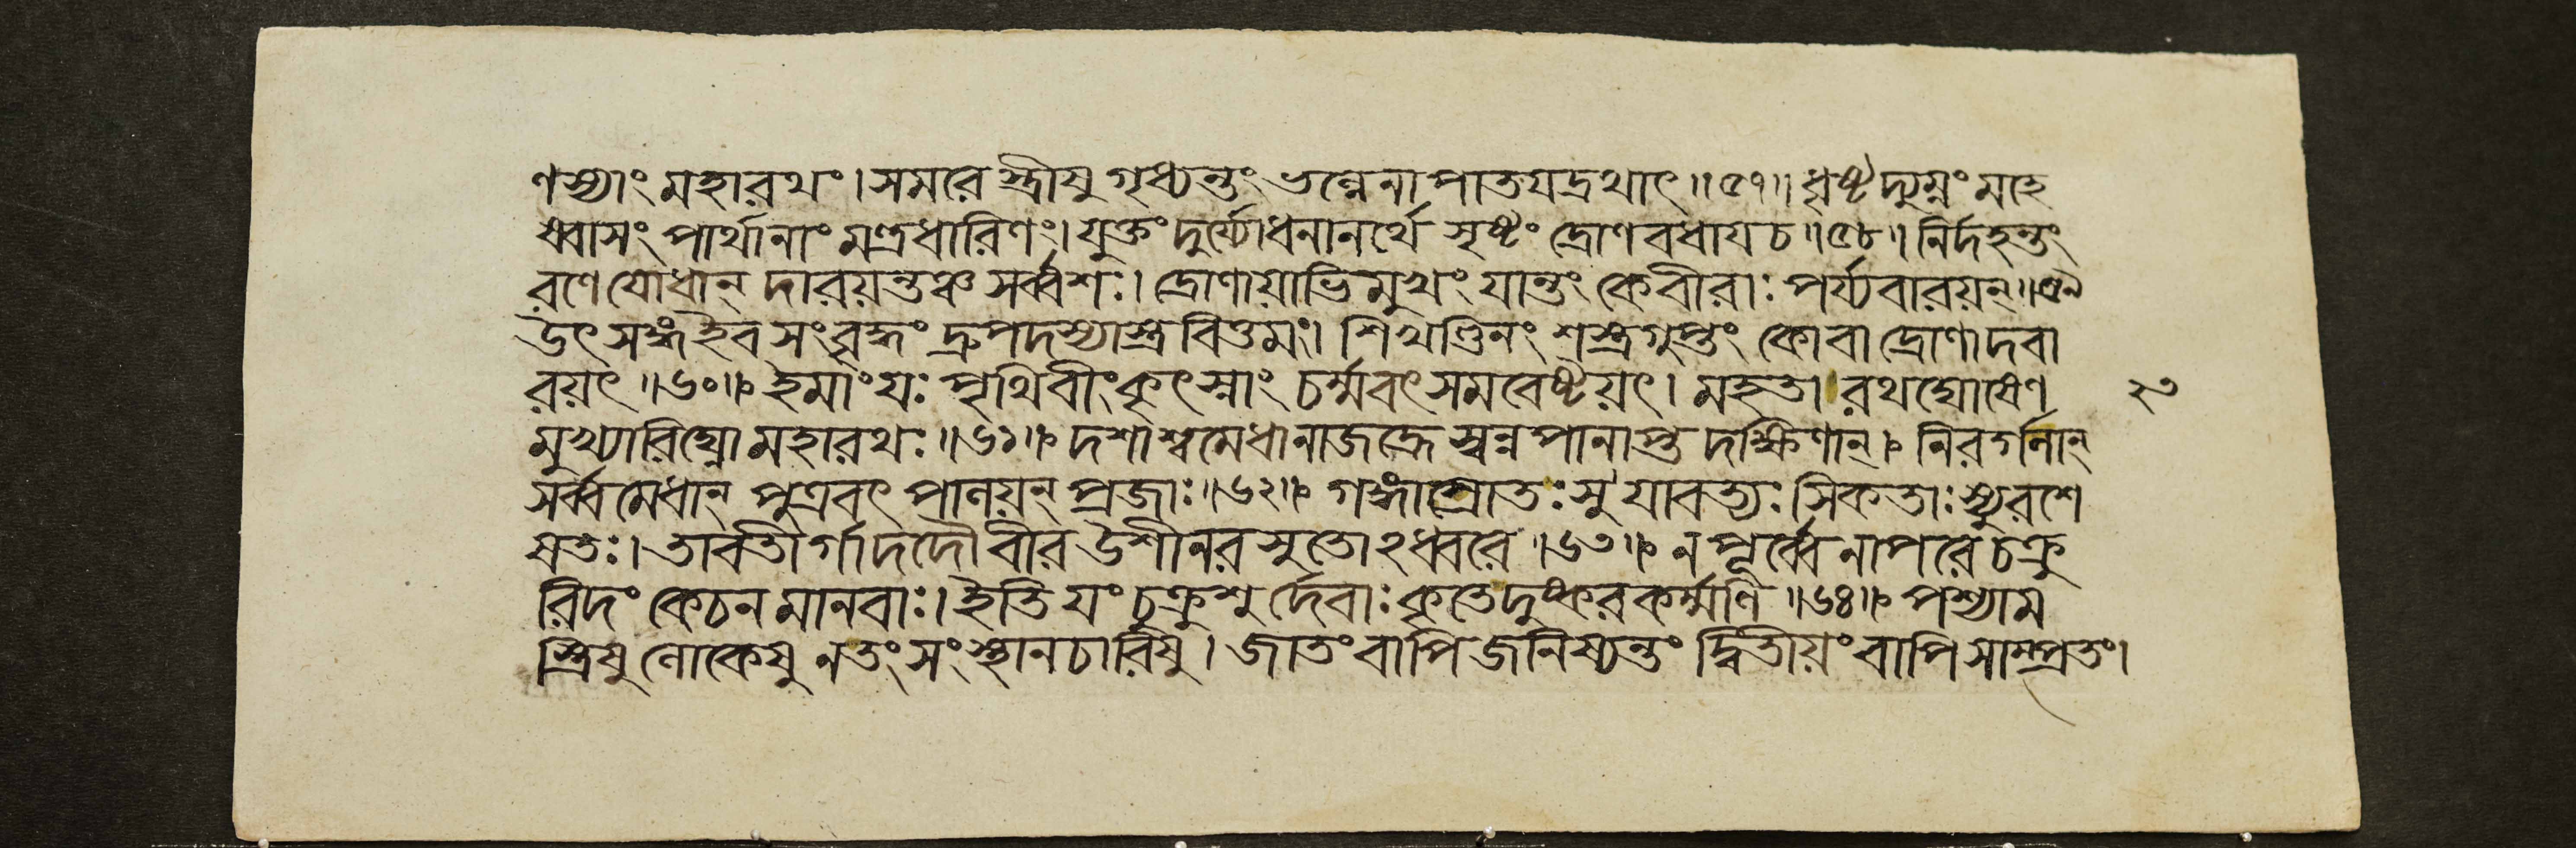 ণস্যাং মহারথং। সমরে স্ত্রীষু গৃধ্যন্তং ভল্লেনাপাতযদ্রথাৎ॥৫৭॥ ধৃষ্টদ্যুম্নং মহে
ষ্বাসং পার্থানাং মন্ত্রধারিণং। যুক্তং দুর্য্যোধনানর্থে সৃষ্টং দ্রোণবধায চ॥৫৮॥ নির্দহন্তং
রণে যোধান্ দারয়ন্তঞ্চ সর্ব্বশঃ। দ্রোণায়াভিমুখং যান্তং কে বীরাঃ পর্য্যবারয়ন্॥৫৯
উৎসঙ্গ ইব সংবৃদ্ধং দ্রুপদস্যাস্ত্রবিত্তমং। শিখণ্ডিনং শস্ত্রগুপ্তং কো বা দ্রোণাদবা
রয়ৎ॥৬০॥ ইমাং যঃ পৃথিবীং কৃৎস্নাং চর্ম্মবৎ সমবেষ্টয়ৎ। মহতা রথঘোষেণ
২৩
মুখ্যারিঘ্নো মহারথঃ॥৬১॥ দশাশ্বমেধানাজহ্রে স্বন্নপানাপ্তদক্ষিণান্। নিরর্গলান্
সর্ব্বমেধান্ পুত্রবৎ পালয়ন্ প্রজাঃ॥৬২॥ গঙ্গাস্রোতঃসু যাবত্যঃ সিকতাঃ স্যুরশে
ষতঃ। তাবতীর্গা দদৌ বীর উশীনরসুতোঽধ্বরে॥৬৩॥ ন পূর্ব্বে নাপরে চক্রু
রিদং কেচন মানবাঃ। ইতি যং চুক্রুশুর্দেবাঃ কৃতে দুষ্করকর্ম্মণি॥৬৪॥ পশ্যাম
স্ত্রিষু লোকেষু ন তং সংস্থানচারিষু। জাতং বাপি জনিষ্যন্তং দ্বিতীয়ং বাপি সাম্প্রতং।